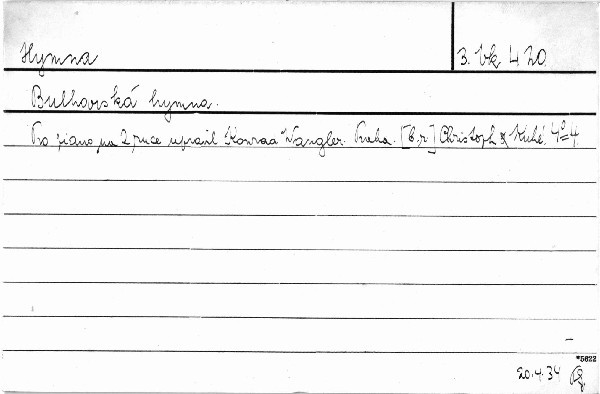 Hymna
3. Vk 420
Bulharská hymna.
Pro piano na 2 ruce upravil Konrad Wangler. Praha. [b.r.] Christoph & Kuhé. 4°-4.
*5622
20.4.34